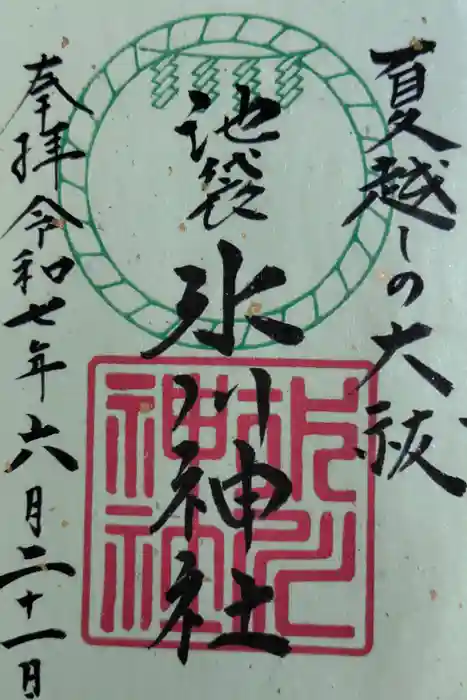 夏越しの大祓
池袋
氷川神社
奉拝令和七年六月二十一日
氷川
神社